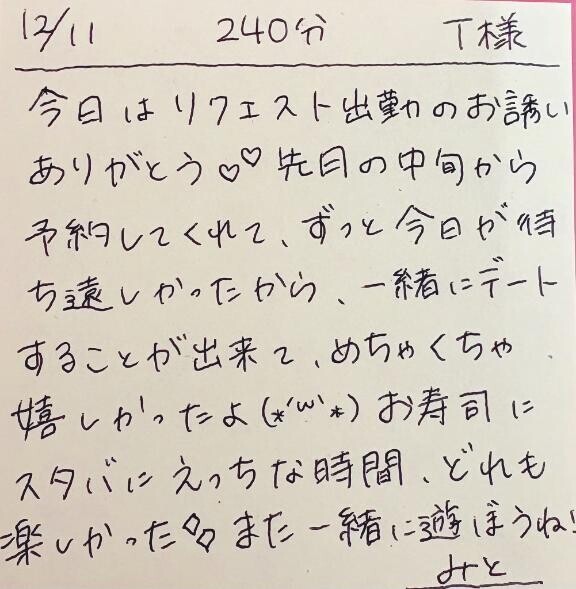 12/11 240分 T様
今日はリクエスト出勤のお誘い
ありがとう♡♡ 先月の中旬から
予約してくれて、ずっと今日が待
ち遠しかったから、一緒にデート
することが出来て、めちゃくちゃ
嬉しかったよ(*'ω'*) お寿司に
スタバにえっちな時間、どれも
楽しかった◇◇ また一緒に遊ぼうね!
みと